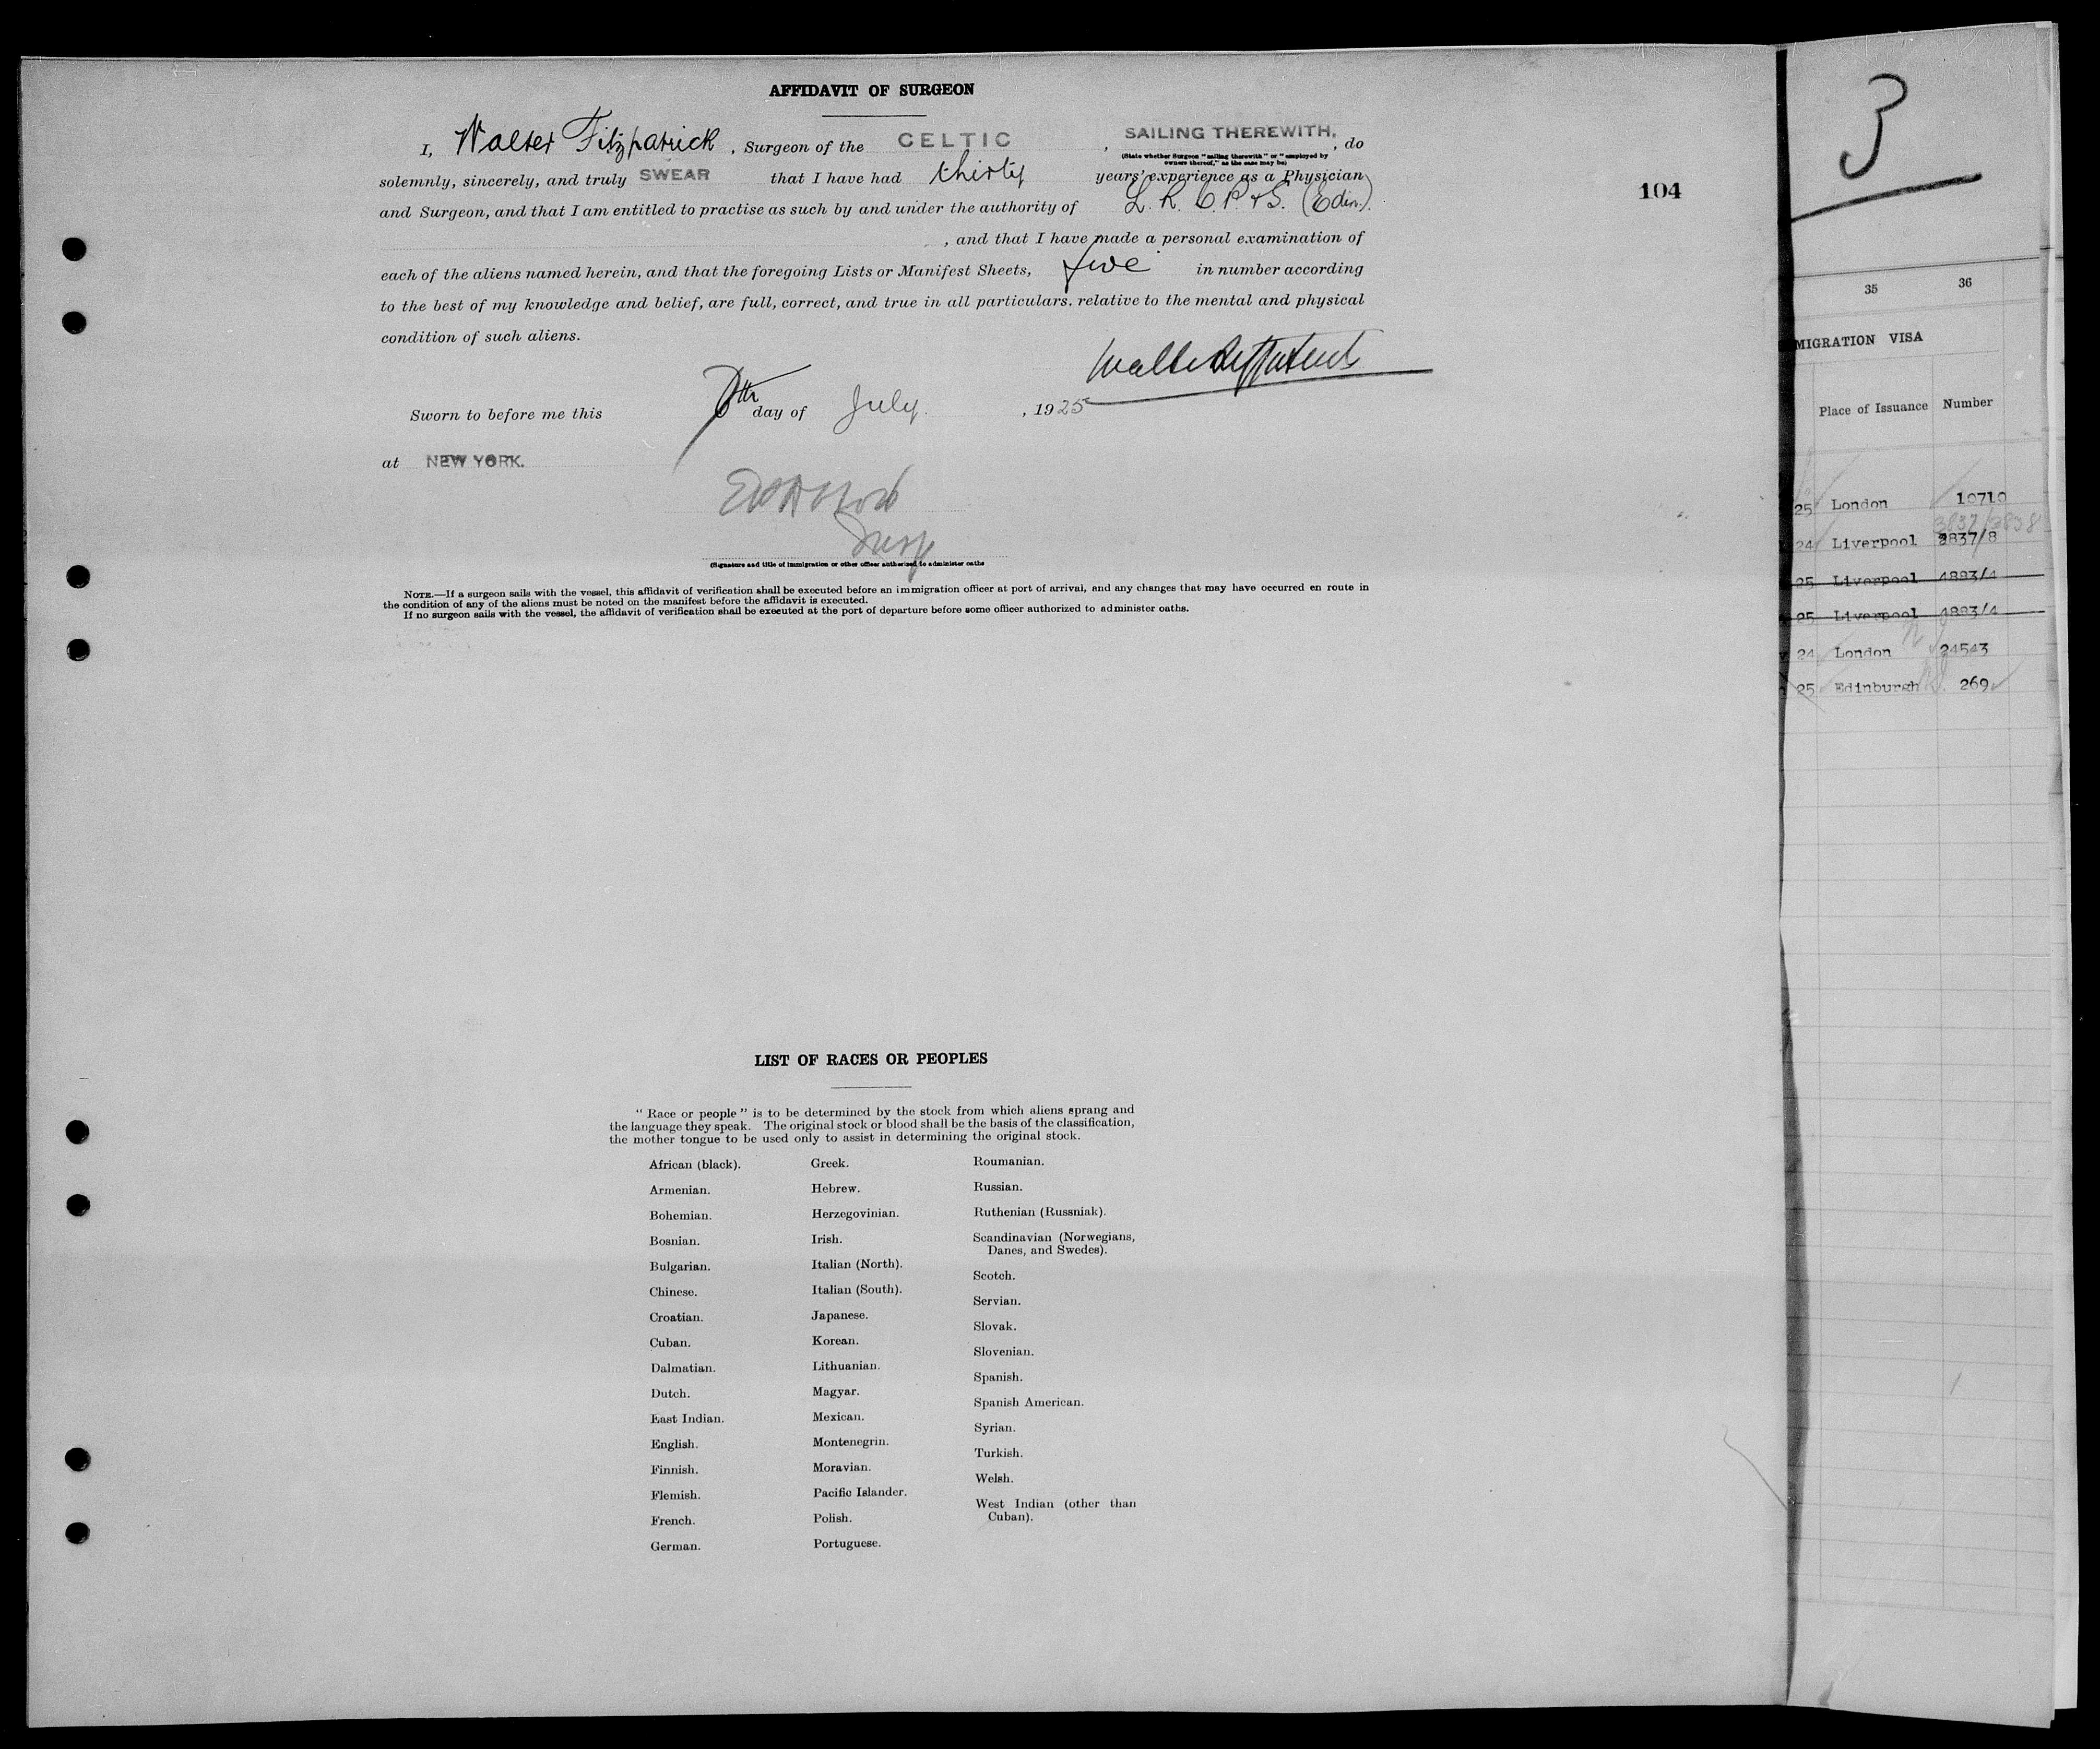 AFFIDAVIT OF SURGEON
I, Walter Fitzpatrick, Surgeon of the CELTIC, SAILING THEREWITH, do
(State whether Surgeon "sailing therewith" or "employed by
owners thereof," as the case may be)
solemnly, sincerely, and truly SWEAR that I have had thirty years' experience as a Physician
and Surgeon, and that I am entitled to practise as such by and under the authority of L. R. C. P. & S. (Edin.).
, and that I have made a personal examination of
each of the aliens named herein, and that the foregoing Lists or Manifest Sheets, five in number according
to the best of my knowledge and belief, are full, correct, and true in all particulars. relative to the mental and physical
condition of such aliens.
Sworn to before me this day of July, 1925
at NEW YORK.
Insp
(Signature and title of immigration or other officer authorized to administer oaths
NOTE.—If a surgeon sails with the vessel, this affidavit of verification shall be executed before an immigration officer at port of arrival, and any changes that may have occurred en route in
the condition of any of the aliens must be noted on the manifest before the affidavit is executed.
If no surgeon sails with the vessel, the affidavit of verification shall be executed at the port of departure before some officer authorized to administer oaths.
104
LIST OF RACES OR PEOPLES
"Race or people" is to be determined by the stock from which aliens sprang and
the language they speak. The original stock or blood shall be the basis of the classification,
the mother tongue to be used only to assist in determining the original stock.
African (black).
Armenian.
Bohemian.
Bosnian.
Bulgarian.
Chinese.
Croatian.
Cuban.
Dalmatian.
Dutch.
East Indian.
English.
Finnish.
Flemish.
French.
German.
Greek.
Hebrew.
Herzegovinian.
Irish.
Italian (North).
Italian (South).
Japanese.
Korean.
Lithuanian.
Magyar.
Mexican.
Montenegrin.
Moravian.
Pacific Islander.
Polish.
Portuguese.
Roumanian.
Russian.
Ruthenian (Russniak).
Scandinavian (Norwegians,
Danes, and Swedes).
Scotch.
Servian.
Slovak.
Slovenian.
Spanish.
Spanish American.
Syrian.
Turkish.
Welsh.
West Indian (other than
Cuban).
3
35 36
MIGRATION VISA
Place of Issuance Number
25 London 10710
3837/3838
24 Liverpool 3837/8
25 Liverpool 4883/4
25 Liverpool 4883/4
24 London 24543
25 Edinburgh 269